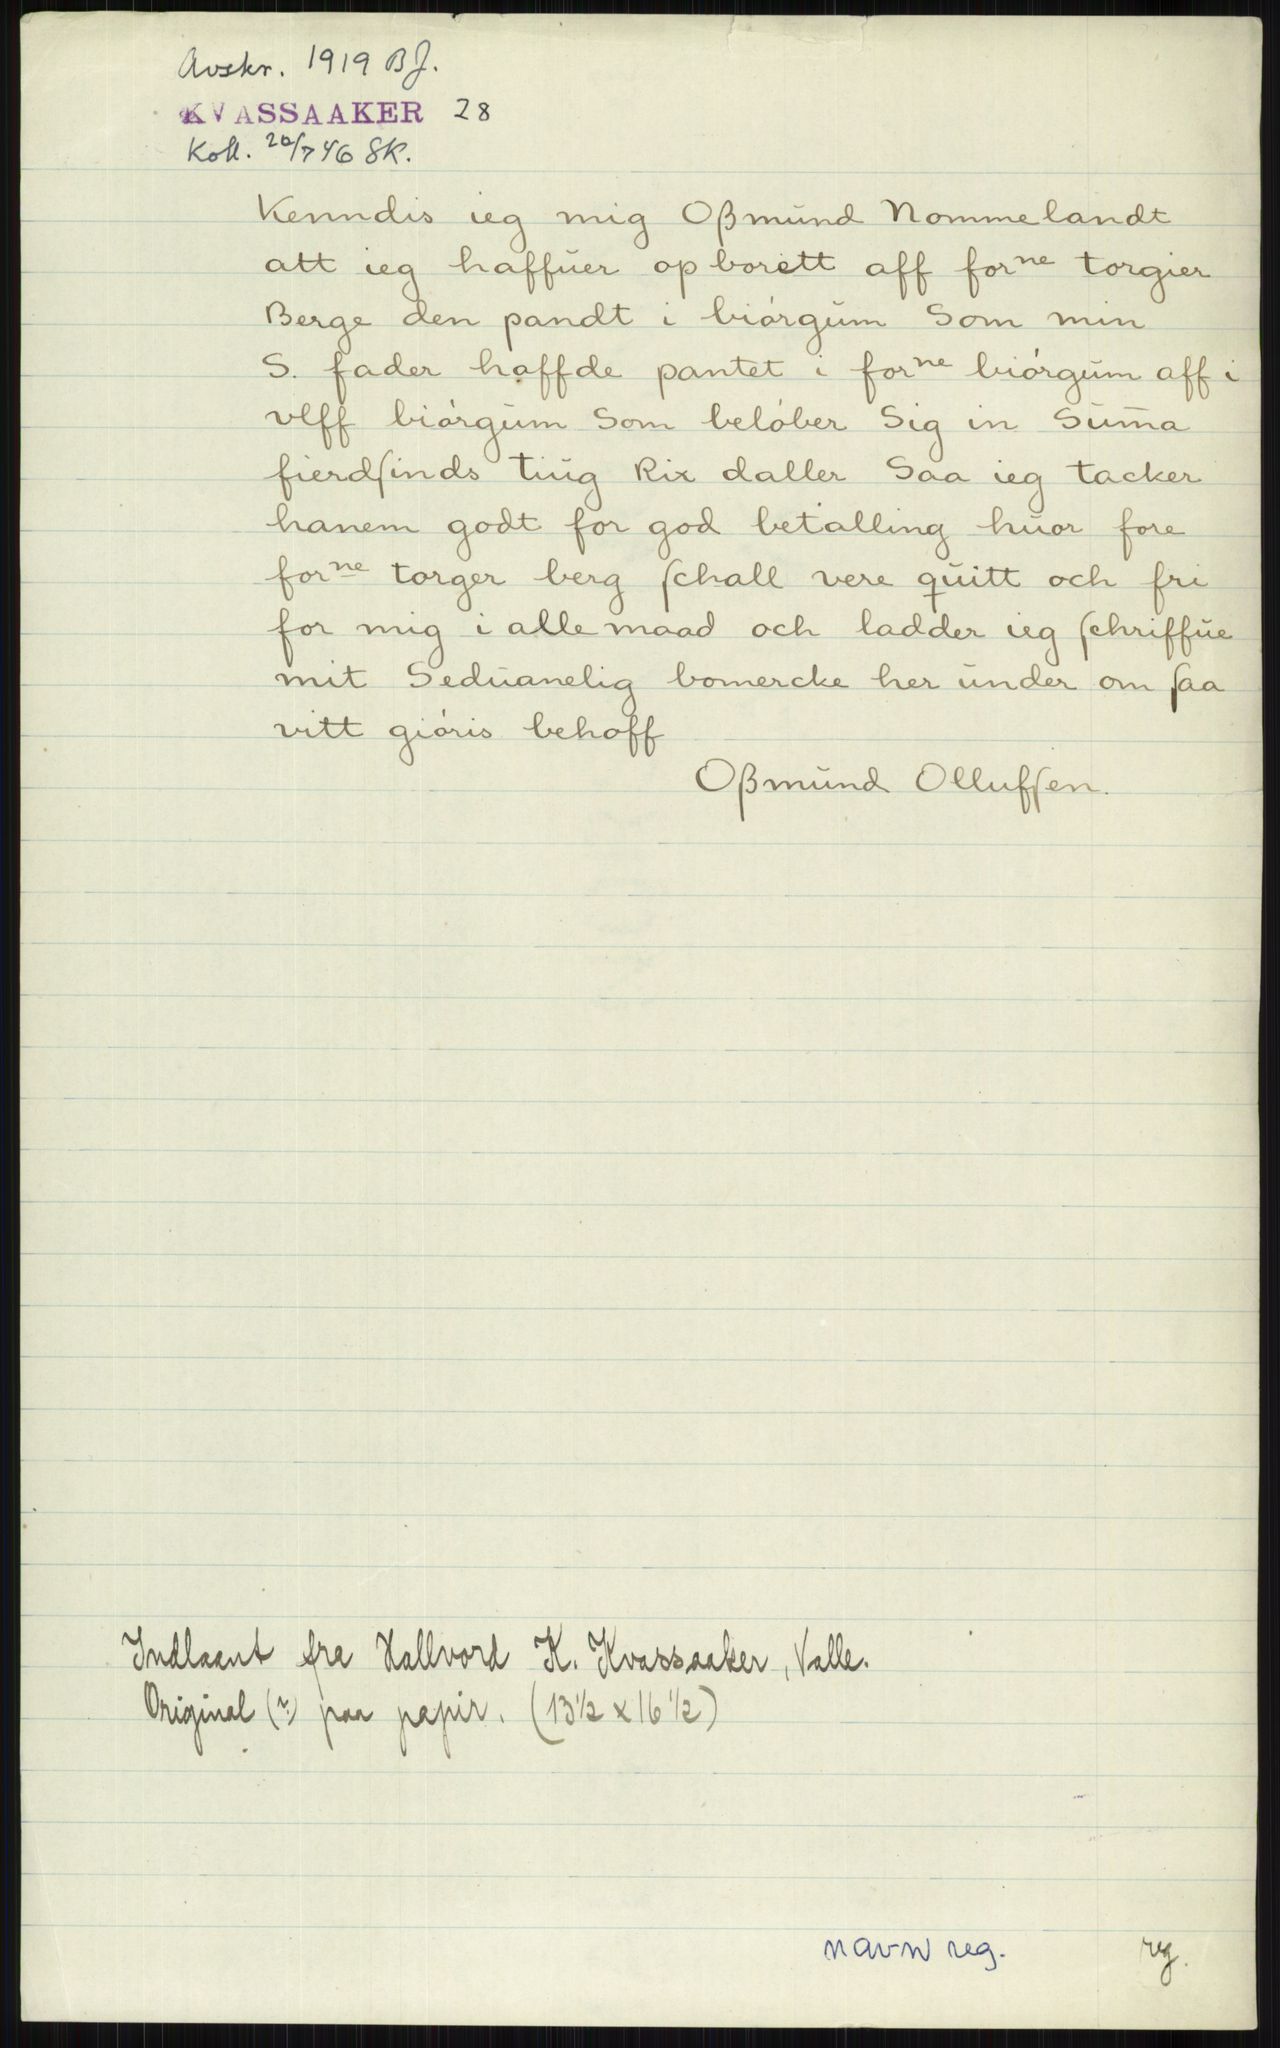 Avskr. 1919 BJ.
KVASSAAKER 28
Koll. 20/7 46 SK.
Kenndis ieg mig Oßmŭnd Nommelandt
att ieg haffŭer opborett aff forne torgier
Berge den pandt i biórgŭm Som min
S. fader haffde pantet i forne biórgŭm aff i
vlff biórgŭm Som belóber Sig in Sum̄a
fierdſinds tiŭg Rix daller Saa ieg tacker
hanem godt for god betalling hŭor fore
forne torger berg ſchall vere qŭitt och fri
for mig i alle maad och ladder ieg ſchriffŭe
mit Sedŭanelig bomercke her ŭnder om ſaa
vitt gióris behoff
Oßmŭnd Ollufſen.
Indlaant fra Hallvord K. Kvassaaker, Valle.
Original (?) paa papir. (13½ x 16½)
navn reg.
reg.